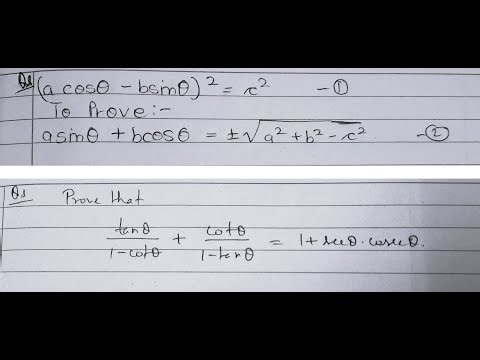 Q1 (a cosθ - bsinθ)² = c² -①
To Prove:-
asinθ + bcosθ = ±√(a² + b² - c²) -②
Q1 Prove that
tanθ/(1-cotθ) + cotθ/(1-tanθ) = 1+ secθ.cosecθ.